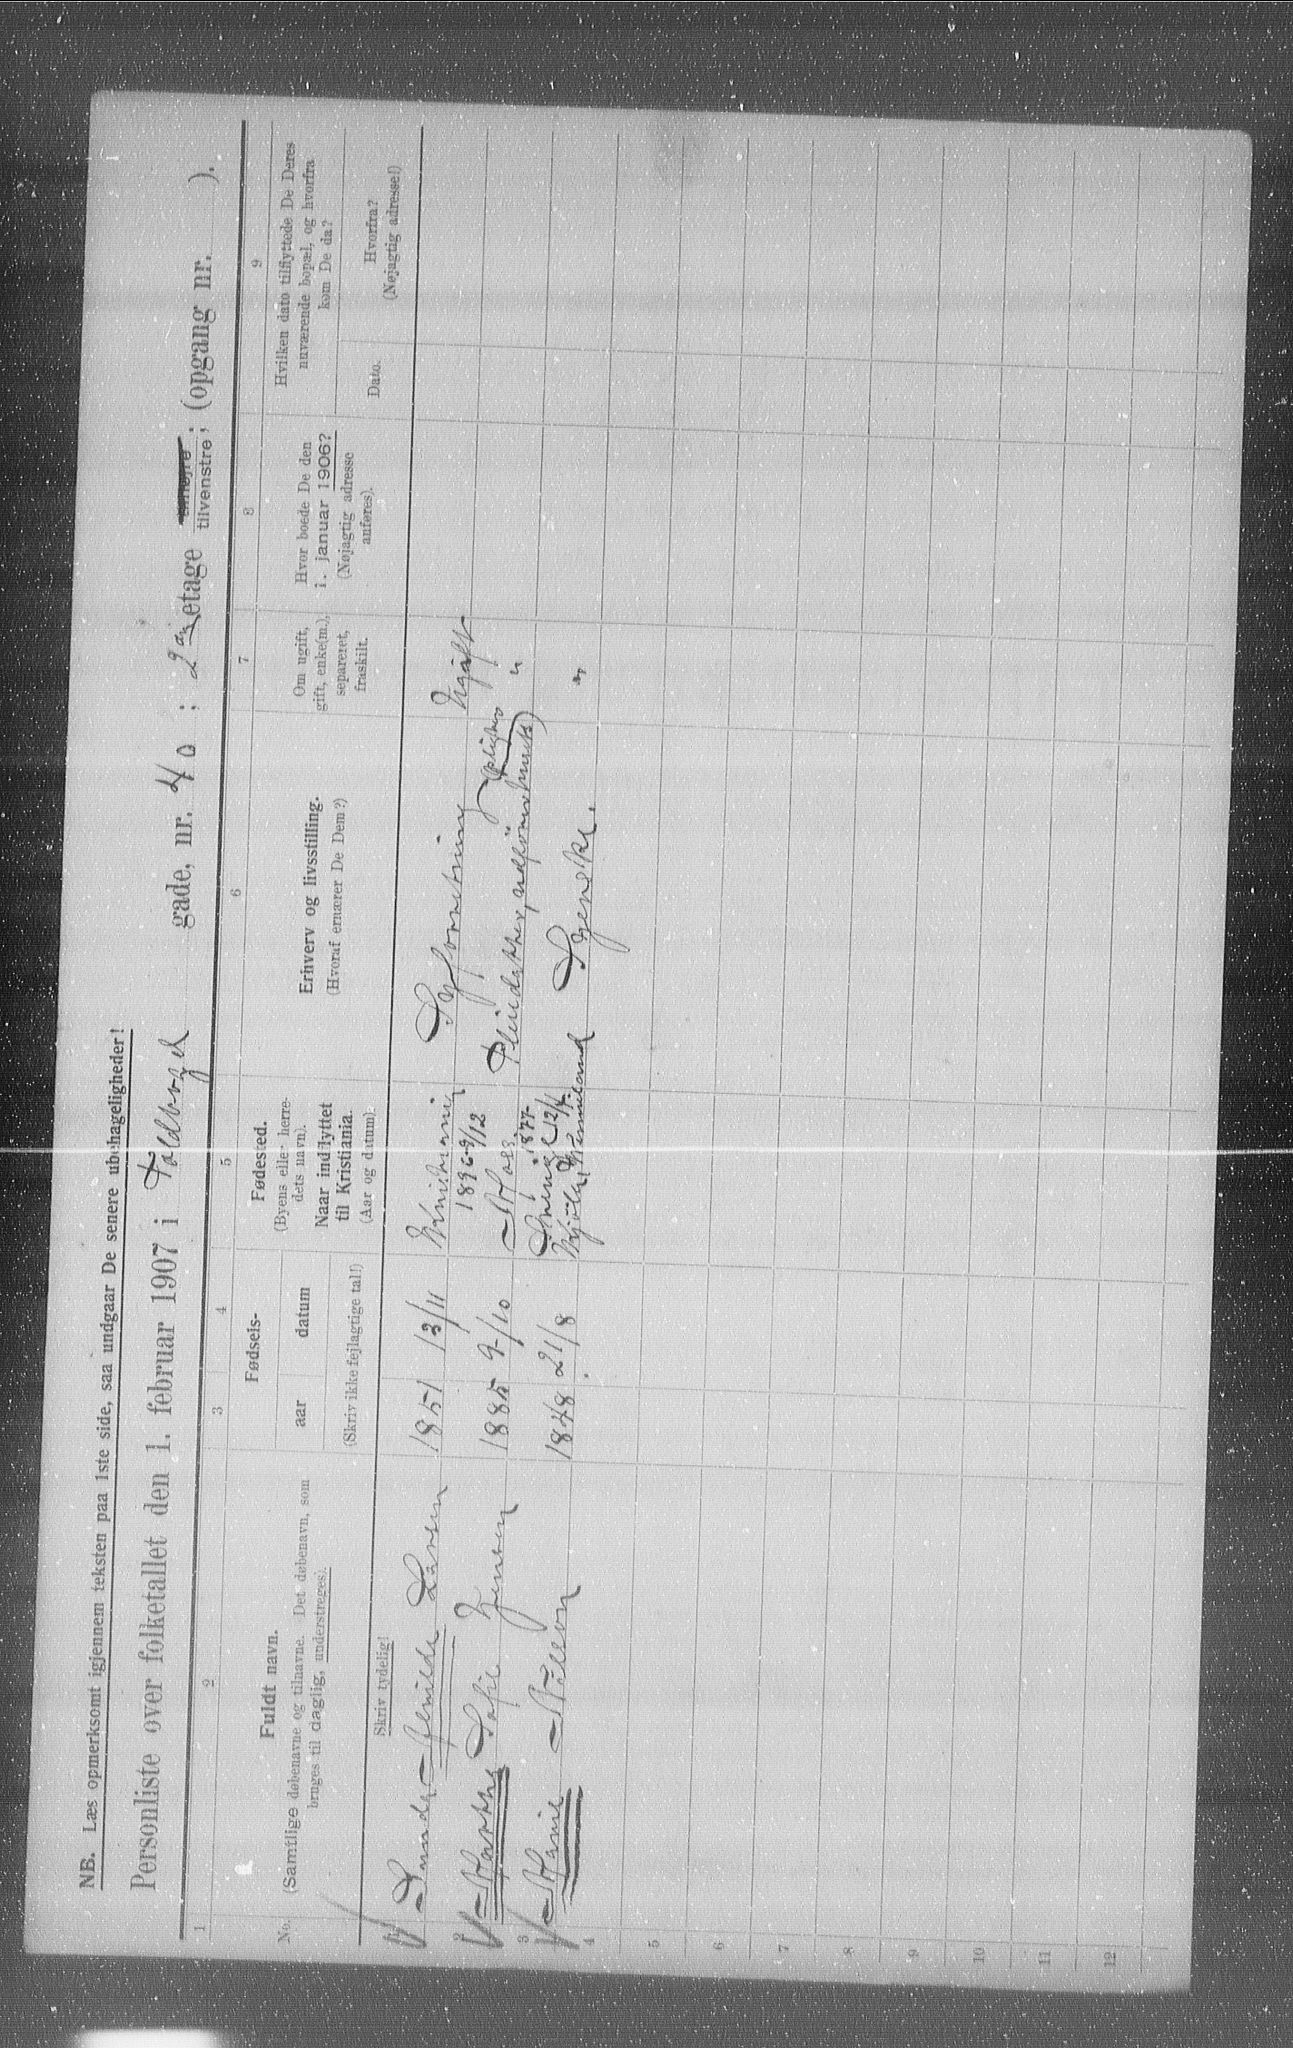 NB. Læs opmerksomt igjennem teksten paa 1ste side, saa undgaar De senere ubehageligheder!
Personliste over folketallet den 1. februar 1907 i Toldbogd gade, nr. 40; 2an etage tilhøjre tilvenstre; (opgang nr. ).
1 2 3 4 5 6 7 8 9
No.
Fuldt navn.
(Samtlige døbenavne og tilnavne. Det døbenavn, som
bruges til daglig, understreges).
Skriv tydelig!
Fødsels-
aar datum
(Skriv ikke fejlagtige tal!)
Fødested.
(Byens eller herre-
dets navn).
Naar indflyttet
til Kristiania.
(Aar og datum).
Erhverv og livsstilling.
(Hvoraf ernærer De Dem?)
Om ugift,
gift, enke(m.),
separeret,
fraskilt.
Hvor boede De den
1. januar 1906?
(Nøjagtig adresse
anføres).
Hvilken dato tilflyttede De Deres
nuværende bopæl, og hvorfra
kom De da?
Dato.
Hvorfra?
(Nøjagtig adresse!)
Larsen 1851 13/11 Kristiania Syforretning Ugift
1896 9/12
2 Marthe Sofie Jensen 1885 9/10 Moss "
3 Marie Nilson 1848 21/8 1877 12/4 "
4
5
6
7
8
9
10
11
12